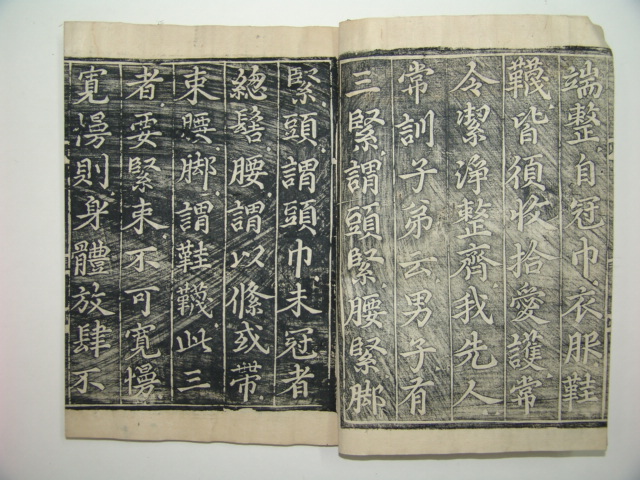 端整自冠巾衣服鞋
韈皆須收拾愛護常
令潔淨整齊我先人
常訓子弟云男子有
三緊謂頭緊腰緊脚
緊頭謂頭巾未冠者
總髻腰謂以絛或帶
束腰脚謂鞋韈此三
者要緊束不可寛慢
寛慢則身體放肆不